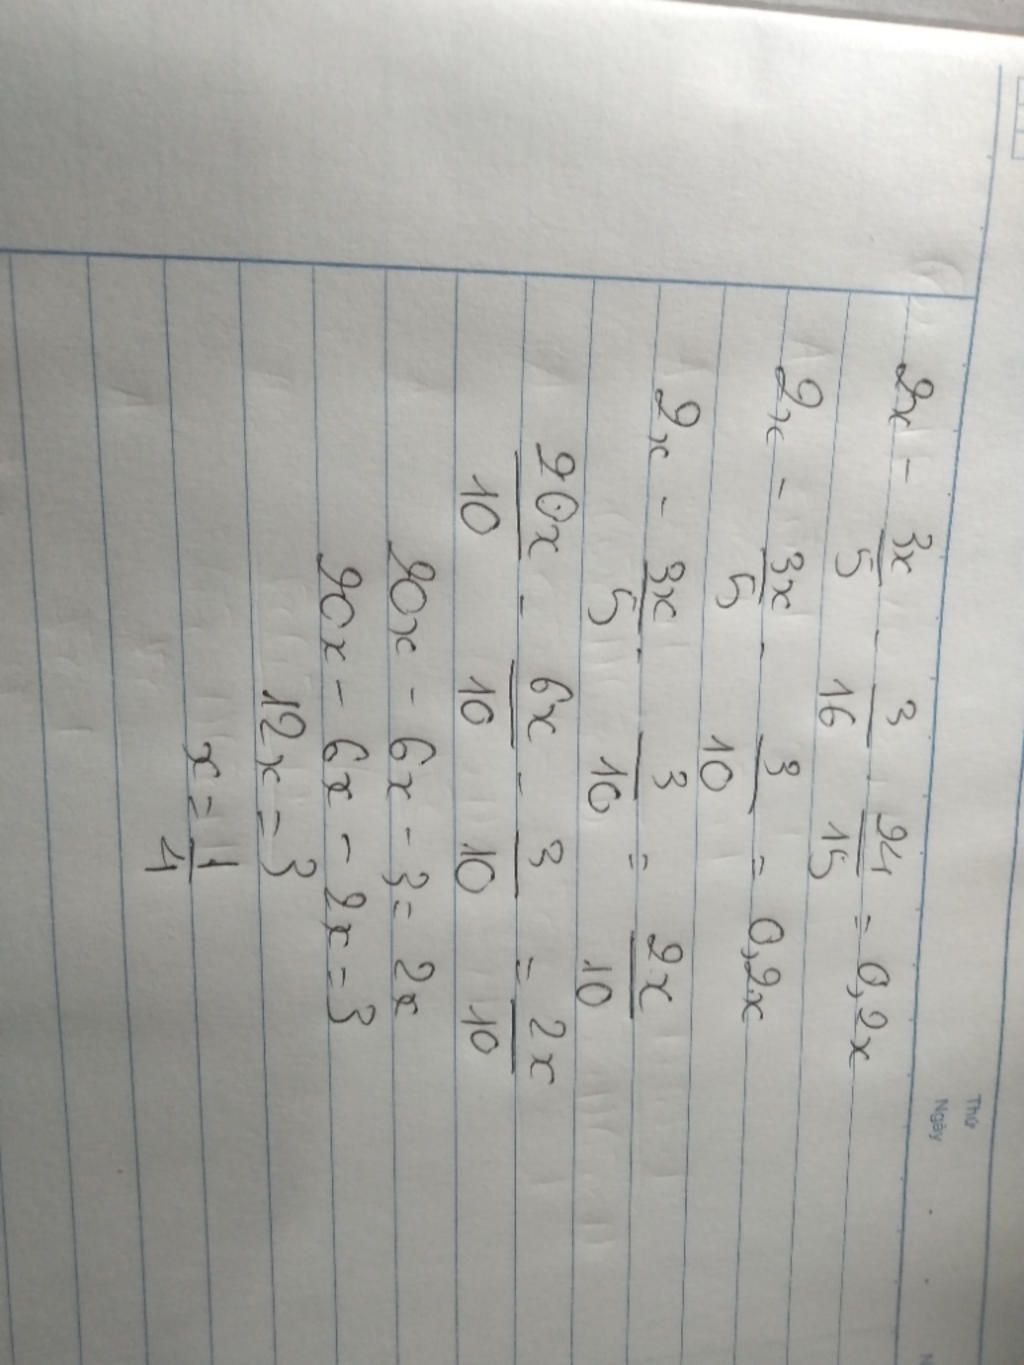 Thứ
Ngày
2x - 3x/5 - 3/16 · 24/15 = 0,2x
2x - 3x/5 - 3/10 = 0,2x
2x - 3x/5 - 3/10 = 2x/10
20x/10 - 6x/10 - 3/10 = 2x/10
20x - 6x - 3 = 2x
20x - 6x - 2x = 3
12x = 3
x = 1/4